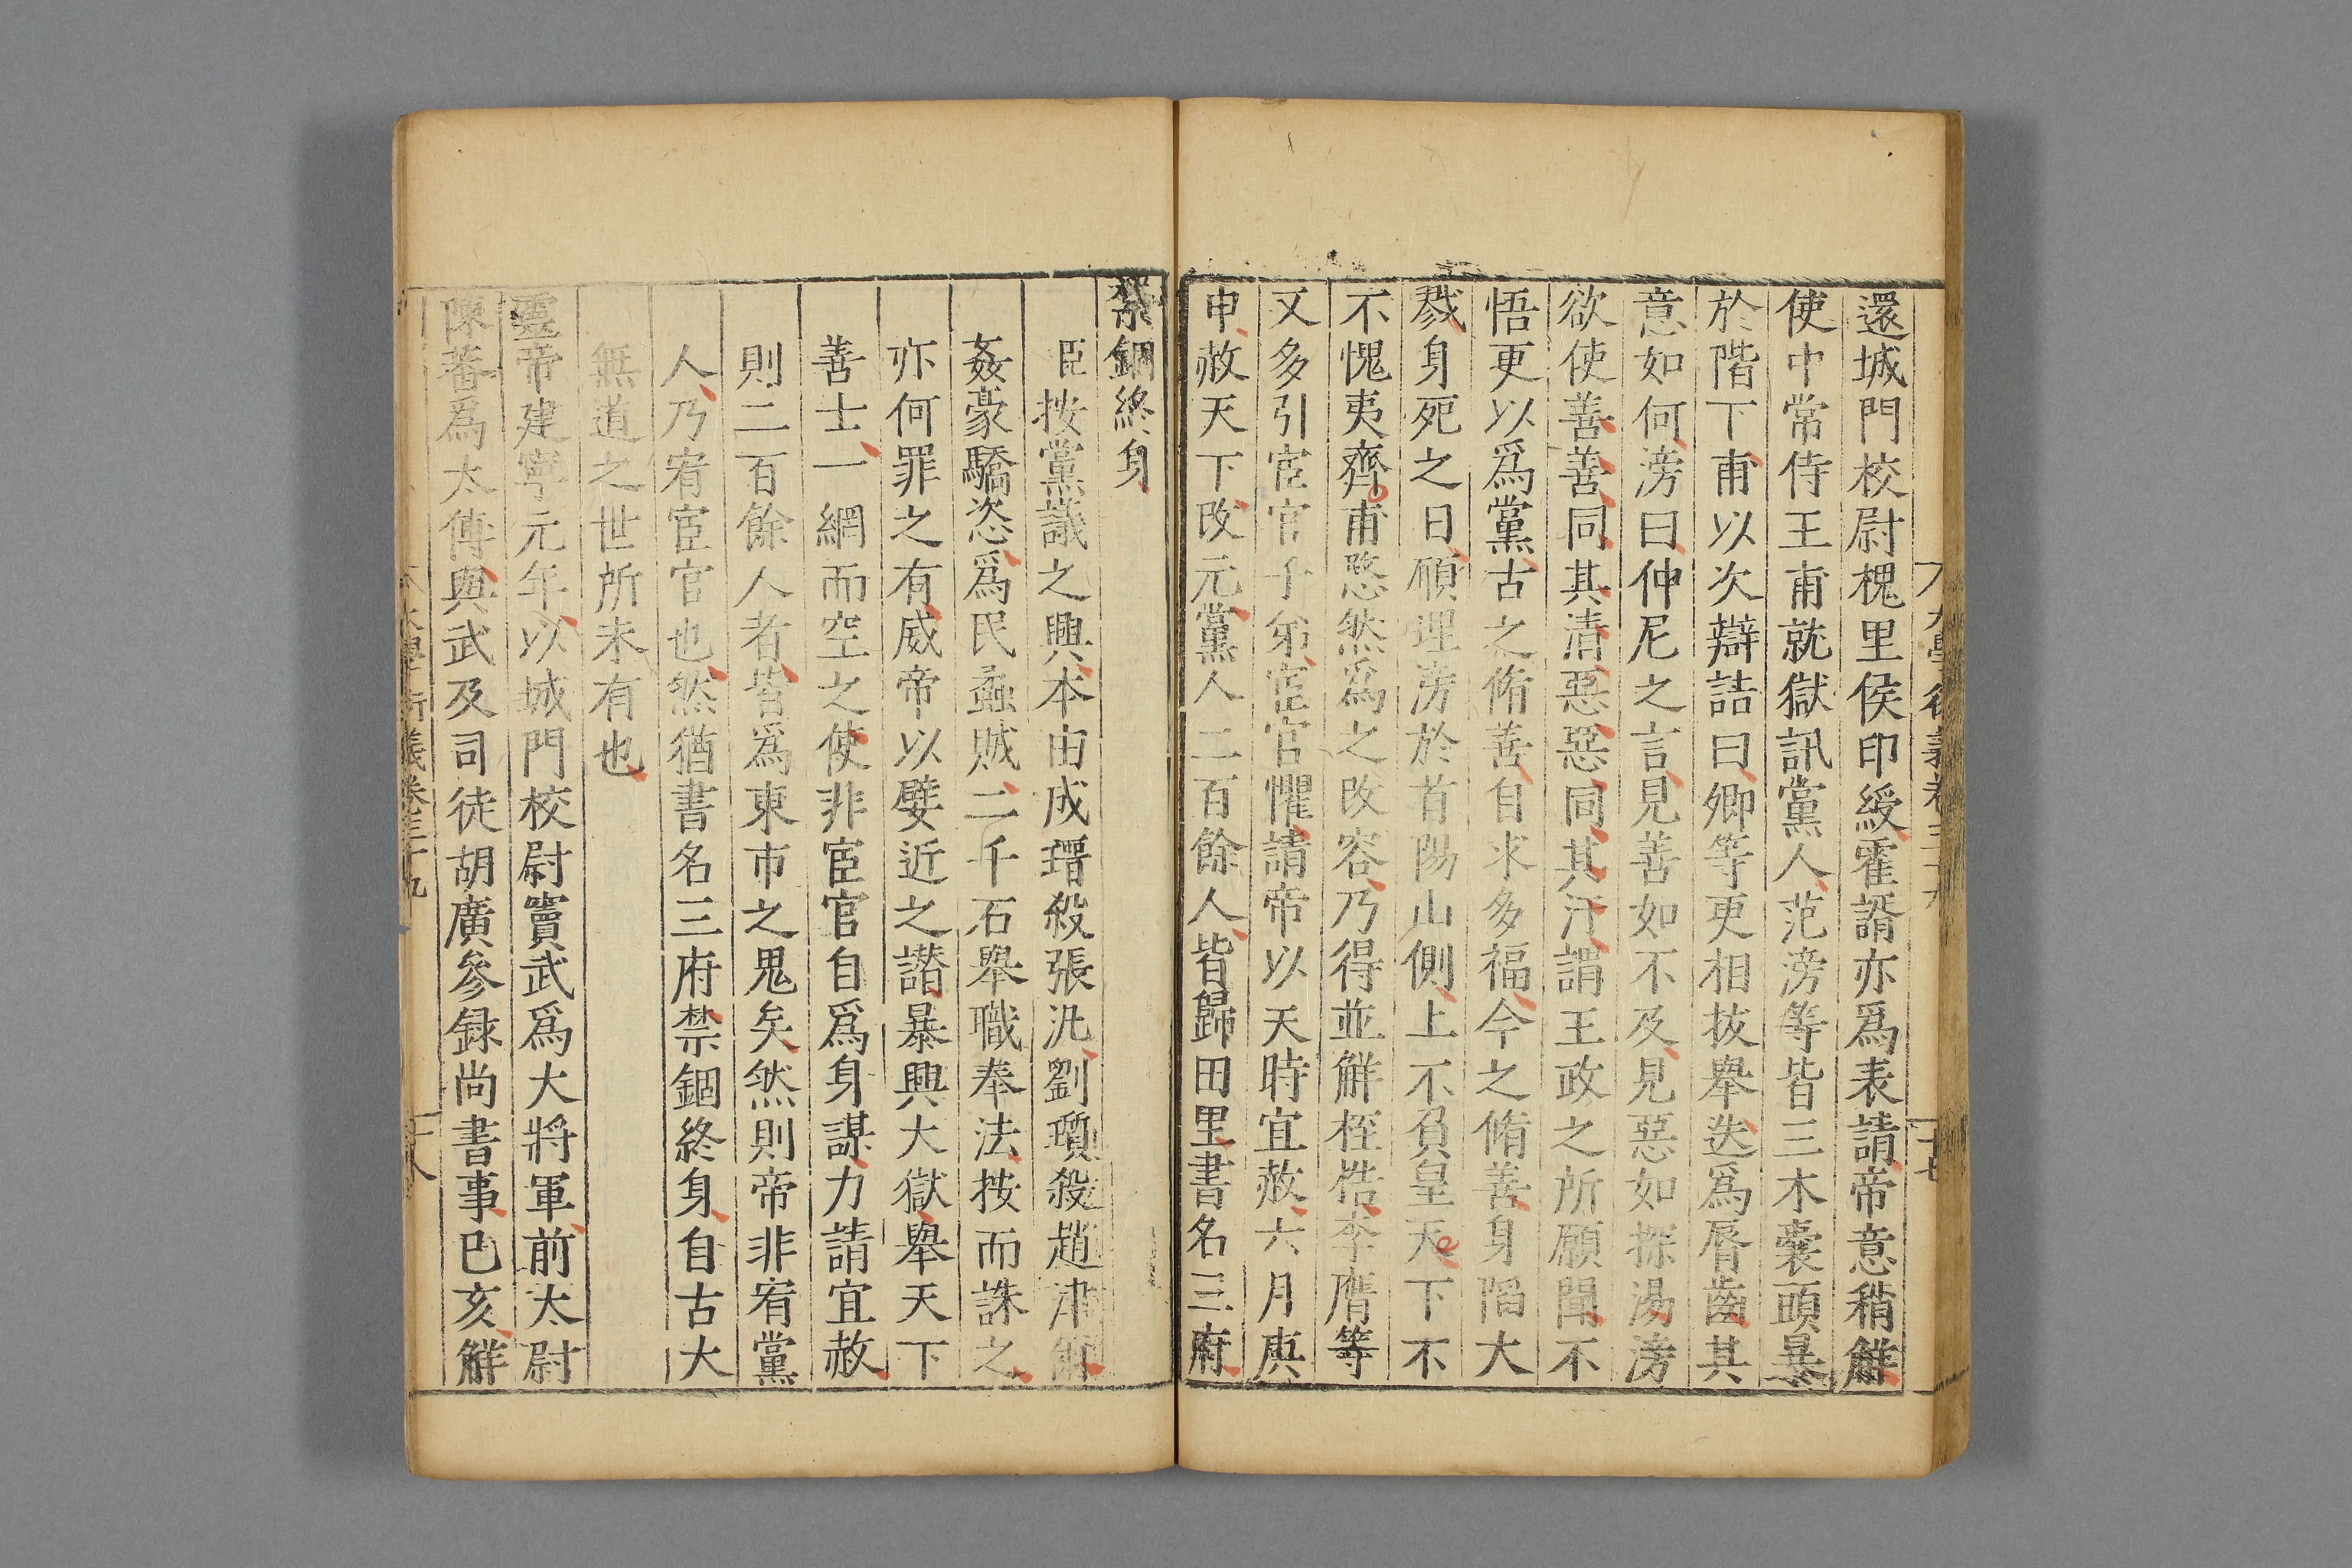 還城門校尉槐里侯印綬霍諝亦爲表請帝意稍解
使中常侍王甫就獄訊黨人范滂等皆三木囊頭暴
於階下甫以次辯詰曰卿等更相拔舉迭爲脣齒其
意如何滂曰仲尼之言見善如不及見惡如探湯滂
欲使善善同其清惡惡同其汙謂王政之所願聞不
悟更以爲黨古之脩善自求多福今之脩善身陷大
戮身死之日願理滂於首陽山側上不負皇天下不
不愧夷齊甫愍然爲之改容乃得並解桎梏李膺等
又多引宦官子弟宦官懼請帝以天時宜赦六月庚
申赦天下改元黨人二百餘人皆歸田里書名三府
禁錮終身
臣按黨議之興本由成瑨殺張汎劉瓆殺趙津解
姦豪驕恣爲民蟊賊二千石舉職奉法按而誅之
亦何罪之有威帝以嬖近之譖暴興大獄舉天下
善士一網而空之使非宦官自爲身謀力請宜赦
則二百餘人者皆爲東市之鬼矣然則帝非宥黨
人乃宥宦官也然猶書名三府禁錮終身自古大
無道之世所未有也
靈帝建寧元年以城門校尉竇武爲大將軍前太尉
陳蕃爲太傅與武及司徒胡廣參録尚書事己亥解
大學衍義卷三十九
十八